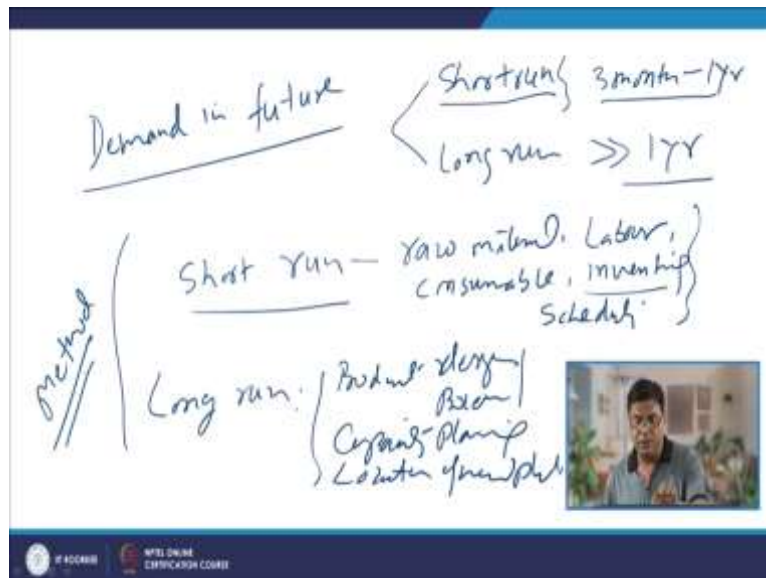 Demand in future
Short run} 3 month - 1yr
Long run >> 1yr
Method
Short run - raw material, Labour,
consumable, inventory
Scheduli
Long run:
Product design
Capacity Planning
Location of new plant
IIT ROORKEE
NPTEL ONLINE
CERTIFICATION COURSE